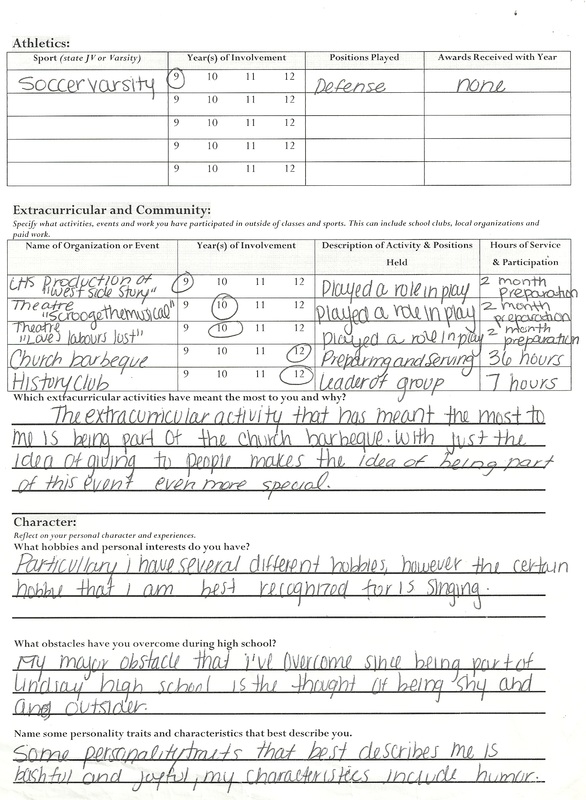 Athletics:
Sport (state JV or Varsity) Year(s) of Involvement Positions Played Awards Received with Year
Soccer varsity 9 10 11 12 Defense none
9 10 11 12
9 10 11 12
9 10 11 12
9 10 11 12
Extracurricular and Community:
Specify what activities, events and work you have participated in outside of classes and sports. This can include school clubs, local organizations and
paid work.
Name of Organization or Event Year(s) of Involvement Description of Activity & Positions Held Hours of Service & Participation
LHS Production of "West Side Story" 9 10 11 12 Played a role in play 2 month Preparation
Theatre "Scroogethemusical" 9 10 11 12 Played a role in play 2 month preparation
Theatre "Love's labours lost" 9 10 11 12 played a role in play 2 month preparation
Church barbeque 9 10 11 12 Preparing and Serving 36 hours
History Club 9 10 11 12 Leader of group 7 hours
Which extracurricular activities have meant the most to you and why?
The extracurricular activity that has meant the most to
me is being part of the church barbeque. With just the
idea of giving to people makes the idea of being part
of this event even more special.
Character:
Reflect on your personal character and experiences.
What hobbies and personal interests do you have?
Particullary i have several different hobbies, however the certain
hobbie that i am best recognized for is singing.
What obstacles have you overcome during high school?
My major obstacle that i've overcome since being part of
Lindsay high school is the thought of being shy and
an outsider.
Name some personality traits and characteristics that best describe you.
Some personality traits that best describes me is
bashful and joyful, my characteristics include humor.